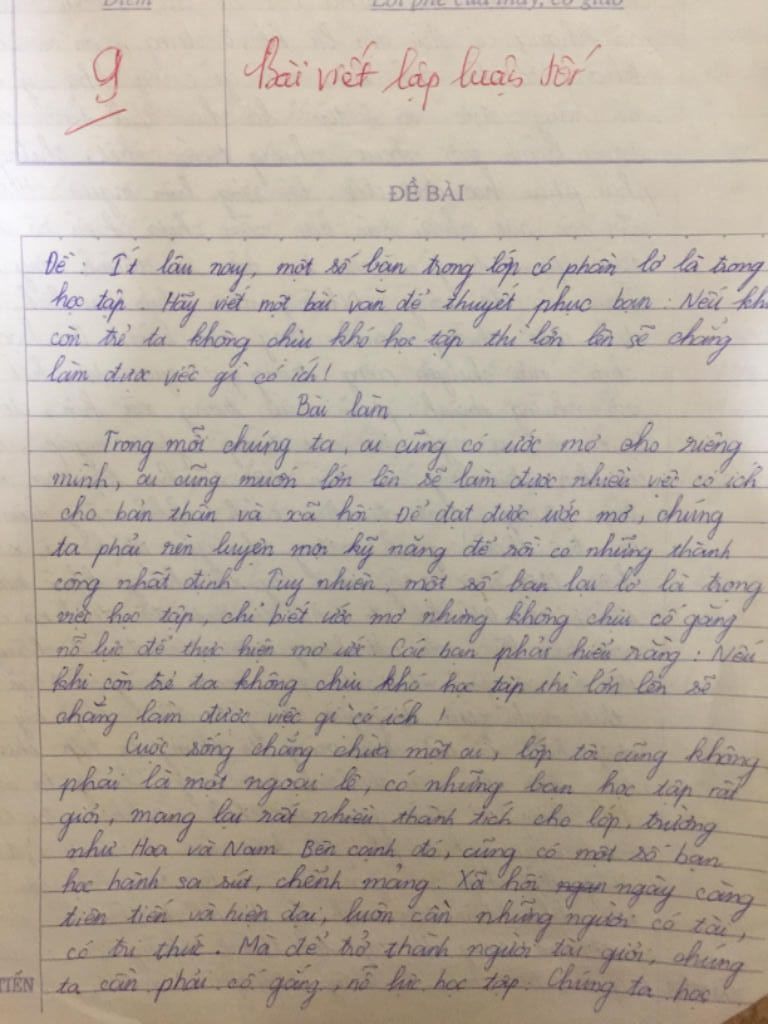 Điểm Lời phê của thầy, cô giáo
9 Bài viết lập luận tốt
ĐỀ BÀI
Đề: Ít lâu nay, một số bạn trong lớp có phần lơ là trong
học tập. Hãy viết một bài văn để thuyết phục bạn: Nếu khi
còn trẻ ta không chịu khó học tập thì lớn lên sẽ chẳng
làm được việc gì có ích!
Bài làm
Trong mỗi chúng ta, ai cũng có ước mơ cho riêng
mình, ai cũng muốn lớn lên sẽ làm được nhiều việc có ích
cho bản thân và xã hội. Để đạt được ước mơ, chúng
ta phải rèn luyện mọi kỹ năng để rồi có những thành
công nhất định. Tuy nhiên, một số bạn lại lơ là trong
việc học tập, chỉ biết ước mơ nhưng không chịu cố gắng
nỗ lực để thực hiện mơ ước. Các bạn phải hiểu rằng: Nếu
khi còn trẻ ta không chịu khó học tập thì lớn lên sẽ
chẳng làm được việc gì có ích!
Cuộc sống chẳng chừa một ai, lớp tôi cũng không
phải là một ngoại lệ, có những bạn học tập rất
giỏi, mang lại rất nhiều thành tích cho lớp, trường
như Hoa và Nam. Bên cạnh đó, cũng có một số bạn
học hành sa sút, chểnh mảng. Xã hội ngày càng
tiên tiến và hiện đại, luôn cần những người có tài,
có tri thức. Mà để trở thành người tài giỏi, chúng
ta cần phải cố gắng, nỗ lực học tập. Chúng ta học
TIẾN